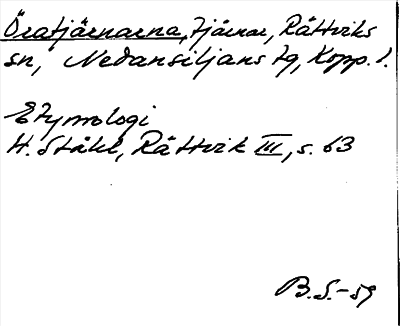 Öratjärnarna, tjärnar, Rättviks
sn, Nedansiljans tg, Kopp. l.
Etymologi
H. Ståhl, Rättvik III, s. 63
B. S. - 59